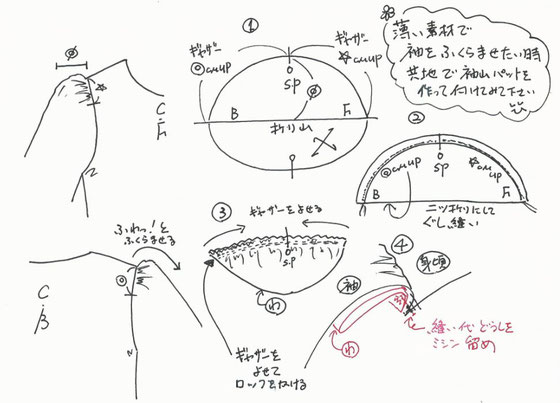 薄い素材で
袖をふくらませたい時
共地で袖山パットを
作って付けてみて下さい
Ø
☆
C.F
①
ギャザー
◎cmUP
ギャザー
☆cmUP
S.P
Ø
B
F
折り山
②
◎cmUP
S.P
☆cmUP
B
F
二ツ折りにして
ぐし縫い
ふわっ!と
ふくらませる
◎
C.B
③
ギャザーをよせる
S.P
わ
ギャザーを
よせて
ロックをかける
④
身頃
袖
わ
縫い代どうしを
ミシン留め